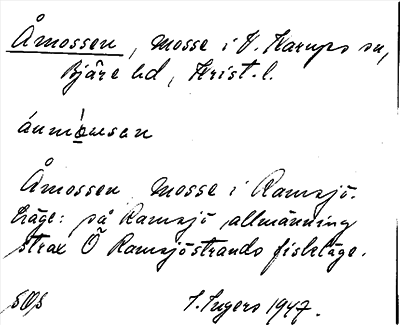 Åmossen, mosse i V. Karups sn,
Bjäre hd, Krist. l.
Åmossen mosse i Ramsjö.
Läge: på Ramsjö allmänning
strax Ö Ramsjöstrands fiskeläge.
I. Ingers 1947.